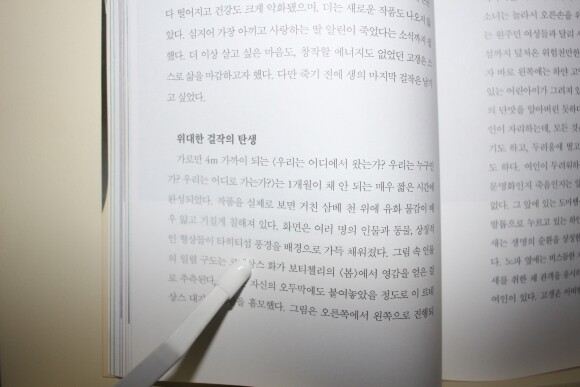 다 떨어지고 건강도 크게 악화됐으며, 더는 새로운 작품도 나오지
았다. 심지어 가장 아끼고 사랑하는 딸 알린이 죽었다는 소식까지
했다. 더 이상 살고 싶은 마음도, 창작할 에너지도 없었던 고갱은
스로 삶을 마감하고자 했다. 다만 죽기 전에 생의 마지막 걸작은 남기
고 싶었다.
위대한 걸작의 탄생
가로만 4m 가까이 되는 〈우리는 어디에서 왔는가? 우리는 누구인
가? 우리는 어디로 가는가?〉는 1개월이 채 안 되는 매우 짧은 시간에
완성되었다. 작품을 실제로 보면 거친 삼베 천 위에 유화 물감이 매
우 얇고 거칠게 칠해져 있다. 화면은 여러 명의 인물과 동물, 상징적
인 형상들이 타히티섬 풍경을 배경으로 가득 채워졌다. 그림 속 인물
의 일렬 구도는 화가 보티첼리의 〈봄〉에서 영감을 얻은 걸
로 추측된다. 자신의 오두막에도 붙여놓았을 정도로 이 르네
상스 흠모했다. 그림은 오른쪽에서 왼쪽으로 진행되
소녀는 놀라서 오른손을
는 원주민 여성들과 달리
성까지 덮쳐온 위험천만한
자 바로 왼쪽에는 하얀
있는 어린아이가 그려져 있
의 단맛을 알아버린 듯하다
인이 자리하는데, 모든 것
기도 하고, 두려움에 떨고
도 하다. 여인이 두려워하
문명화인지 죽음인지는
없다. 그 앞에 있는 도마뱀
발톱으로 누르고 있는 하얀
새는 생명의 순환을 상징한
다. 노파 옆에는 비스듬한
세를 취한 채 관객을 응시하
여인이 있다. 고갱은